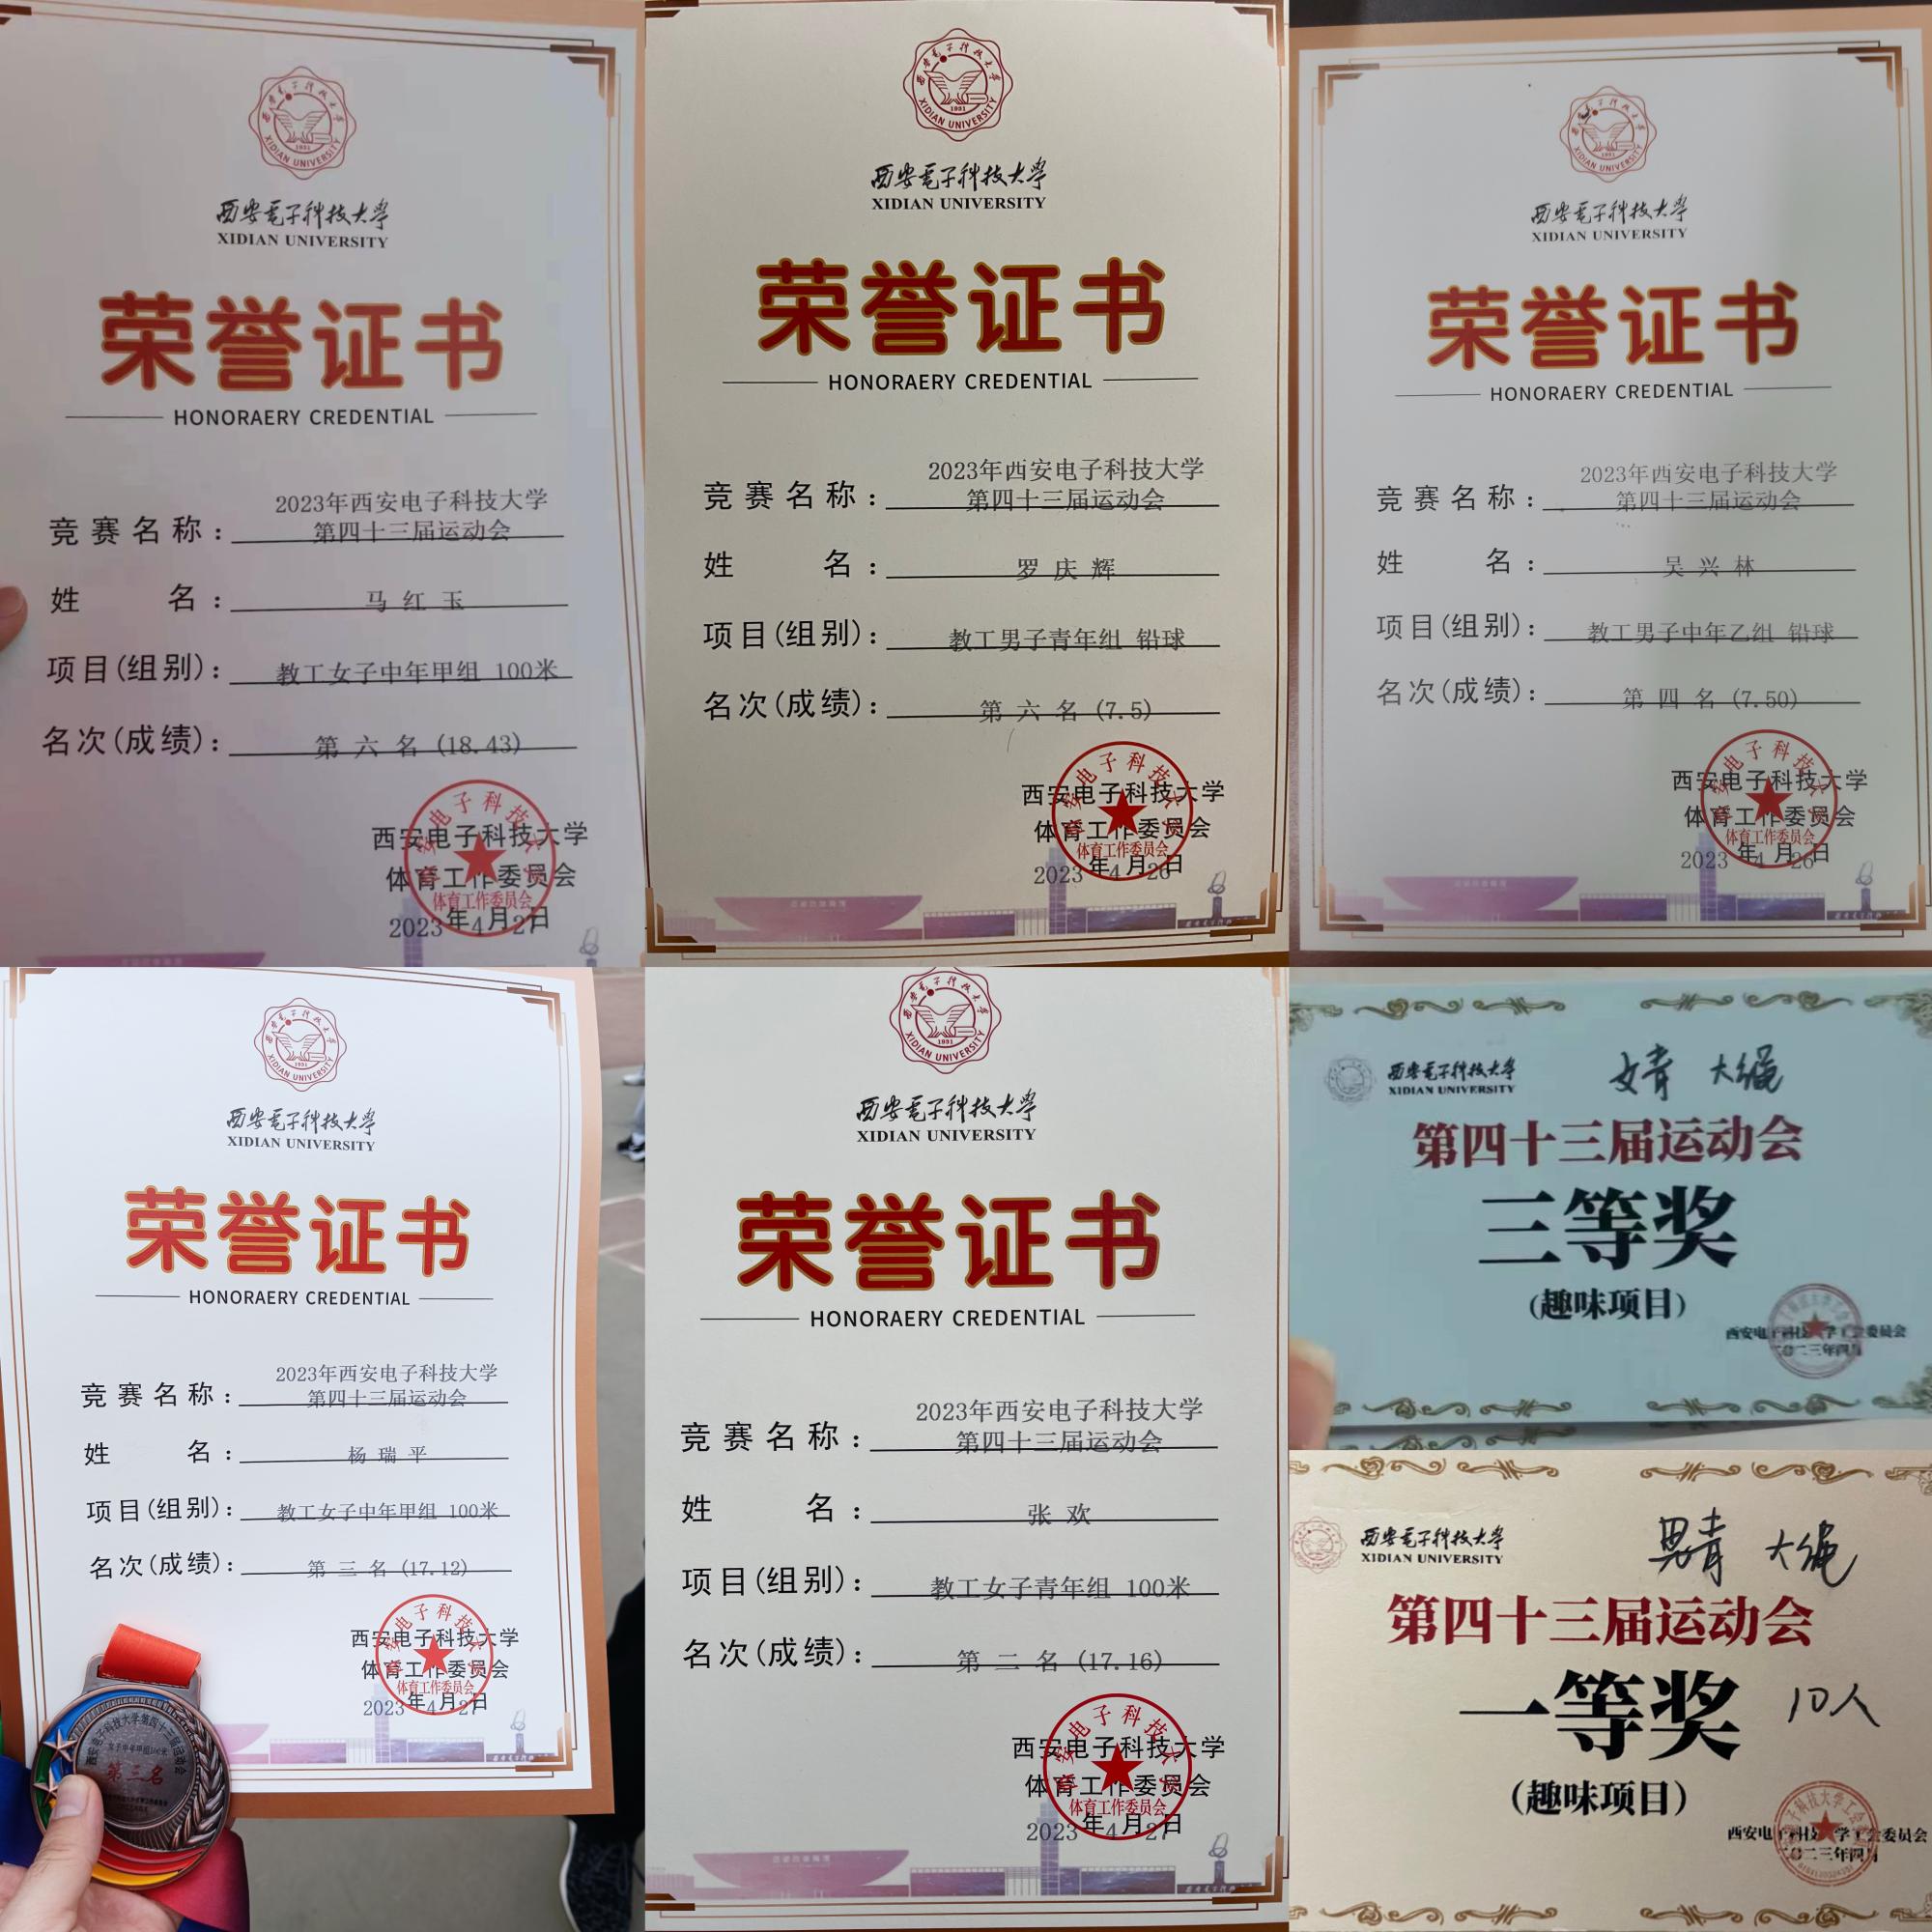 西安电子科技大学
XIDIAN UNIVERSITY
荣誉证书
HONORAERY CREDENTIAL
2023年西安电子科技大学
竞赛名称：第四十三届运动会
姓名：马红玉
项目(组别)：教工女子中年甲组 100米
名次(成绩)：第六名(18.43)
西安电子科技大学
体育工作委员会
体育工作委员会
2023年4月27日
西安电子科技大学
XIDIAN UNIVERSITY
1931
西安电子科技大学
XIDIAN UNIVERSITY
荣誉证书
HONORAERY CREDENTIAL
2023年西安电子科技大学
竞赛名称：第四十三届运动会
姓名：罗庆辉
项目(组别)：教工男子青年组 铅球
名次(成绩)：第六名(7.5)
西安电子科技大学
体育工作委员会
体育工作委员会
2023年4月26日
西安电子科技大学
XIDIAN UNIVERSITY
荣誉证书
HONORAERY CREDENTIAL
2023年西安电子科技大学
竞赛名称：第四十三届运动会
姓名：吴兴林
项目(组别)：教工男子中年乙组 铅球
名次(成绩)：第四名(7.50)
西安电子科技大学
体育工作委员会
体育工作委员会
2023年4月26日
西安电子科技大学
XIDIAN UNIVERSITY
荣誉证书
HONORAERY CREDENTIAL
2023年西安电子科技大学
竞赛名称：第四十三届运动会
姓名：杨瑞平
项目(组别)：教工女子中年甲组 100米
名次(成绩)：第三名(17.12)
西安电子科技大学
体育工作委员会
体育工作委员会
2023年4月27日
西安电子科技大学第四十三届运动会
女子中年甲组100米
第三名
西安电子科技大学
XIDIAN UNIVERSITY
荣誉证书
HONORAERY CREDENTIAL
2023年西安电子科技大学
竞赛名称：第四十三届运动会
姓名：张欢
项目(组别)：教工女子青年组 100米
名次(成绩)：第二名(17.16)
西安电子科技大学
体育工作委员会
体育工作委员会
2023年4月27日
西安电子科技大学
XIDIAN UNIVERSITY
女青 大绳
第四十三届运动会
三等奖
(趣味项目)
西安电子科技大学工会委员会
二〇二三年四月
西安电子科技大学
XIDIAN UNIVERSITY
男青 大绳
第四十三届运动会
一等奖 10人
(趣味项目)
西安电子科技大学工会委员会
二〇二三年四月